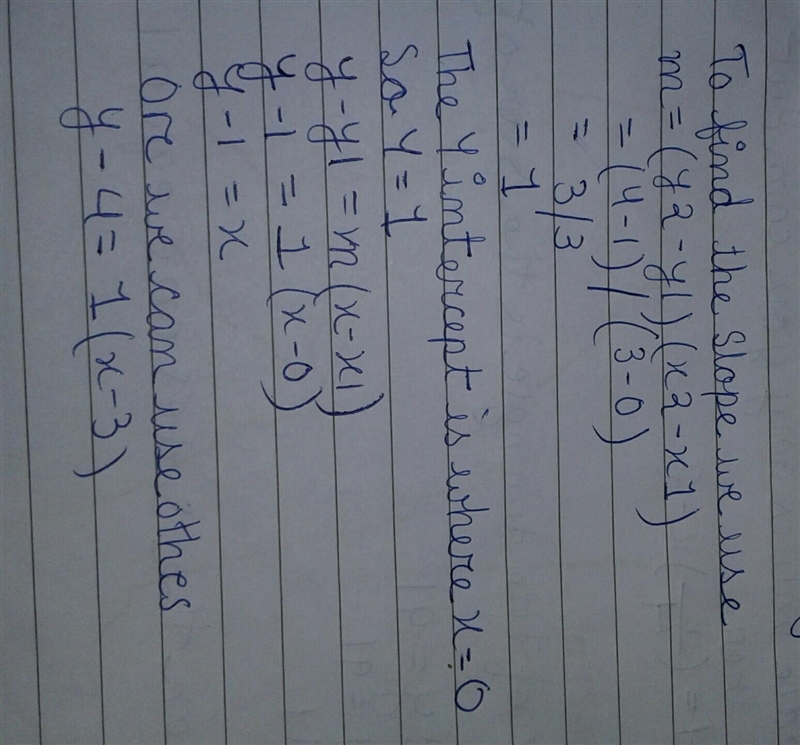 To find the Slope we use
m = (y2 - y1) (x2 - x1)
= (4-1) / (3-0)
= 3/3
= 1
The Y intercept is where x = 0
So Y = 1
y - y1 = m (x - x1)
y - 1 = 1 (x - 0)
y - 1 = x
Or we can use othes
y - 4 = 1 (x - 3)